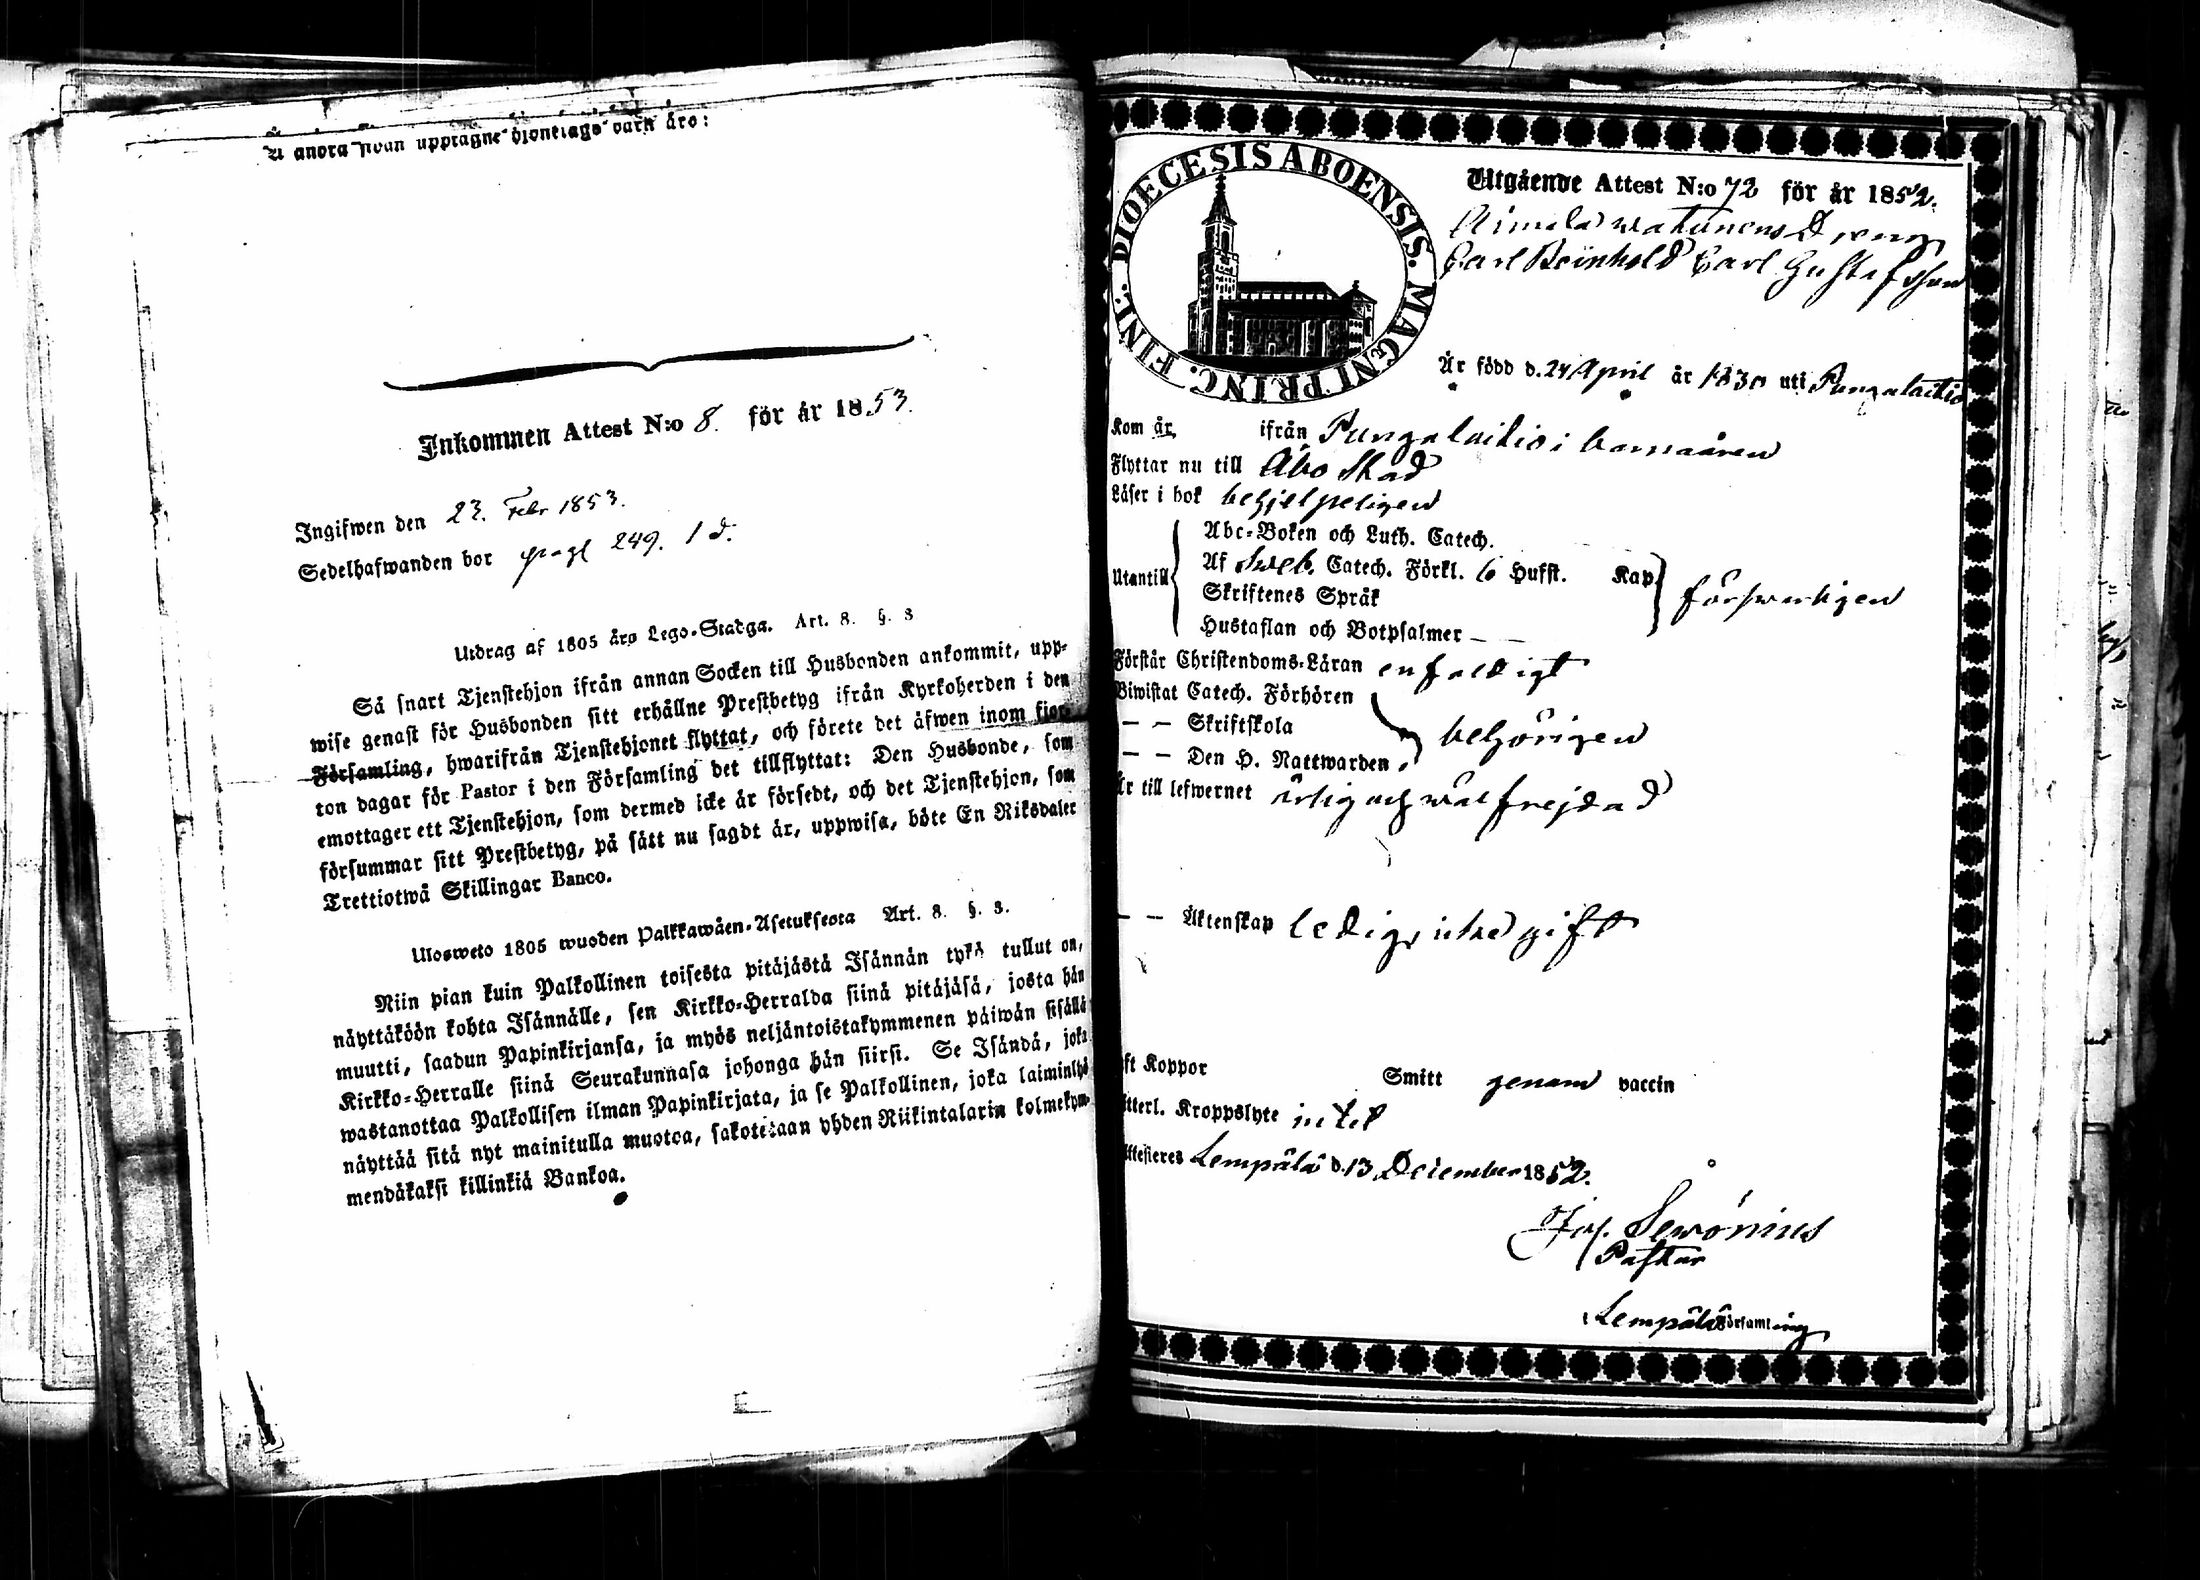 å andra sidan upptagne tjenstlags barn äro:
Inkommen Attest N:o 8. för år 1853.
Ingifwen den 23. Febr 1853.
Sedelhafwanden bor pagl 249. 1 d.
Utdrag af 1805 års Lego-Stadga. Art. 8. §. 3
Så snart Tjenstehjon ifrån annan Socken till Husbonden ankommit, upp-
wise genast för Husbonden sitt erhållne Prestbetyg ifrån Kyrkoherden i den
Församling, hwarifrån Tjenstehjonet flyttat, och förete det äfwen inom fjor-
ton dagar för Pastor i den Församling det tillflyttat: Den Husbonde, som
emottager ett Tjenstehjon, som dermed icke är försedt, och det Tjenstehjon, som
försummar sitt Prestbetyg, på sätt nu sagdt är, uppwisa, böte En Riksdaler
Trettiotwå Skillingar Banco.
Ulosweto 1805 wuoden Palkkawäen-Asetuksesta Art. 8. §. 3.
Niin pian kuin Palkollinen toisesta pitäjästä Isännän tykö tullut on,
näyttäköön kohta Isännälle, sen Kirkko-Herralda siinä pitäjäsä, josta hän
muutti, saadun Papinkirjansa, ja myös neljäntoistakymmenen päiwän sisällä
Kirkko-Herralle siinä Seurakunnasa johonga hän siirsi. Se Isändä, joka
wastanottaa Palkollisen ilman Papinkirjata, ja se Palkollinen, joka laiminlyö
näyttää sitä nyt mainitulla muotoa, sakotetaan yhden Riikintalarin kolmekym-
mendäkaksi killinkiä Bankoa.
DIOECESIS ABOENSIS. MAGNI PRINC. FINL.
Utgående Attest N:o 72 för år 1852.
Carl Reinhold Carl Gustafsson
Är född d. 24 April år 1830 uti Pungalaitio
Kom år ifrån Pungalaitio i barnaåren
Flyttar nu till Åbo Stad
Läser i bok behjelpeligen
Abc-Boken och Luth. Catech.
Utantill Af Sweb. Catech. Förkl. 6 Hufst. Kap. försvarligen
Skriftenes Språk
Hustaflan och Botpsalmer — —
Förstår Christendoms-Läran enfaldigt
Biwistat Catech. Förhören
— — Skriftskola behörigen
— — Den H. Nattwarden
Är till lefwernet ärlig och wälfrejdad
— — Äktenskap ledig, icke gift
ft Koppor Smitt genom vaccin
tterl. Kroppslyte intet
ttesteres Lempälä d. 13 December 1852.
Jos. Sewonius
Pastor
Lempälä Församling